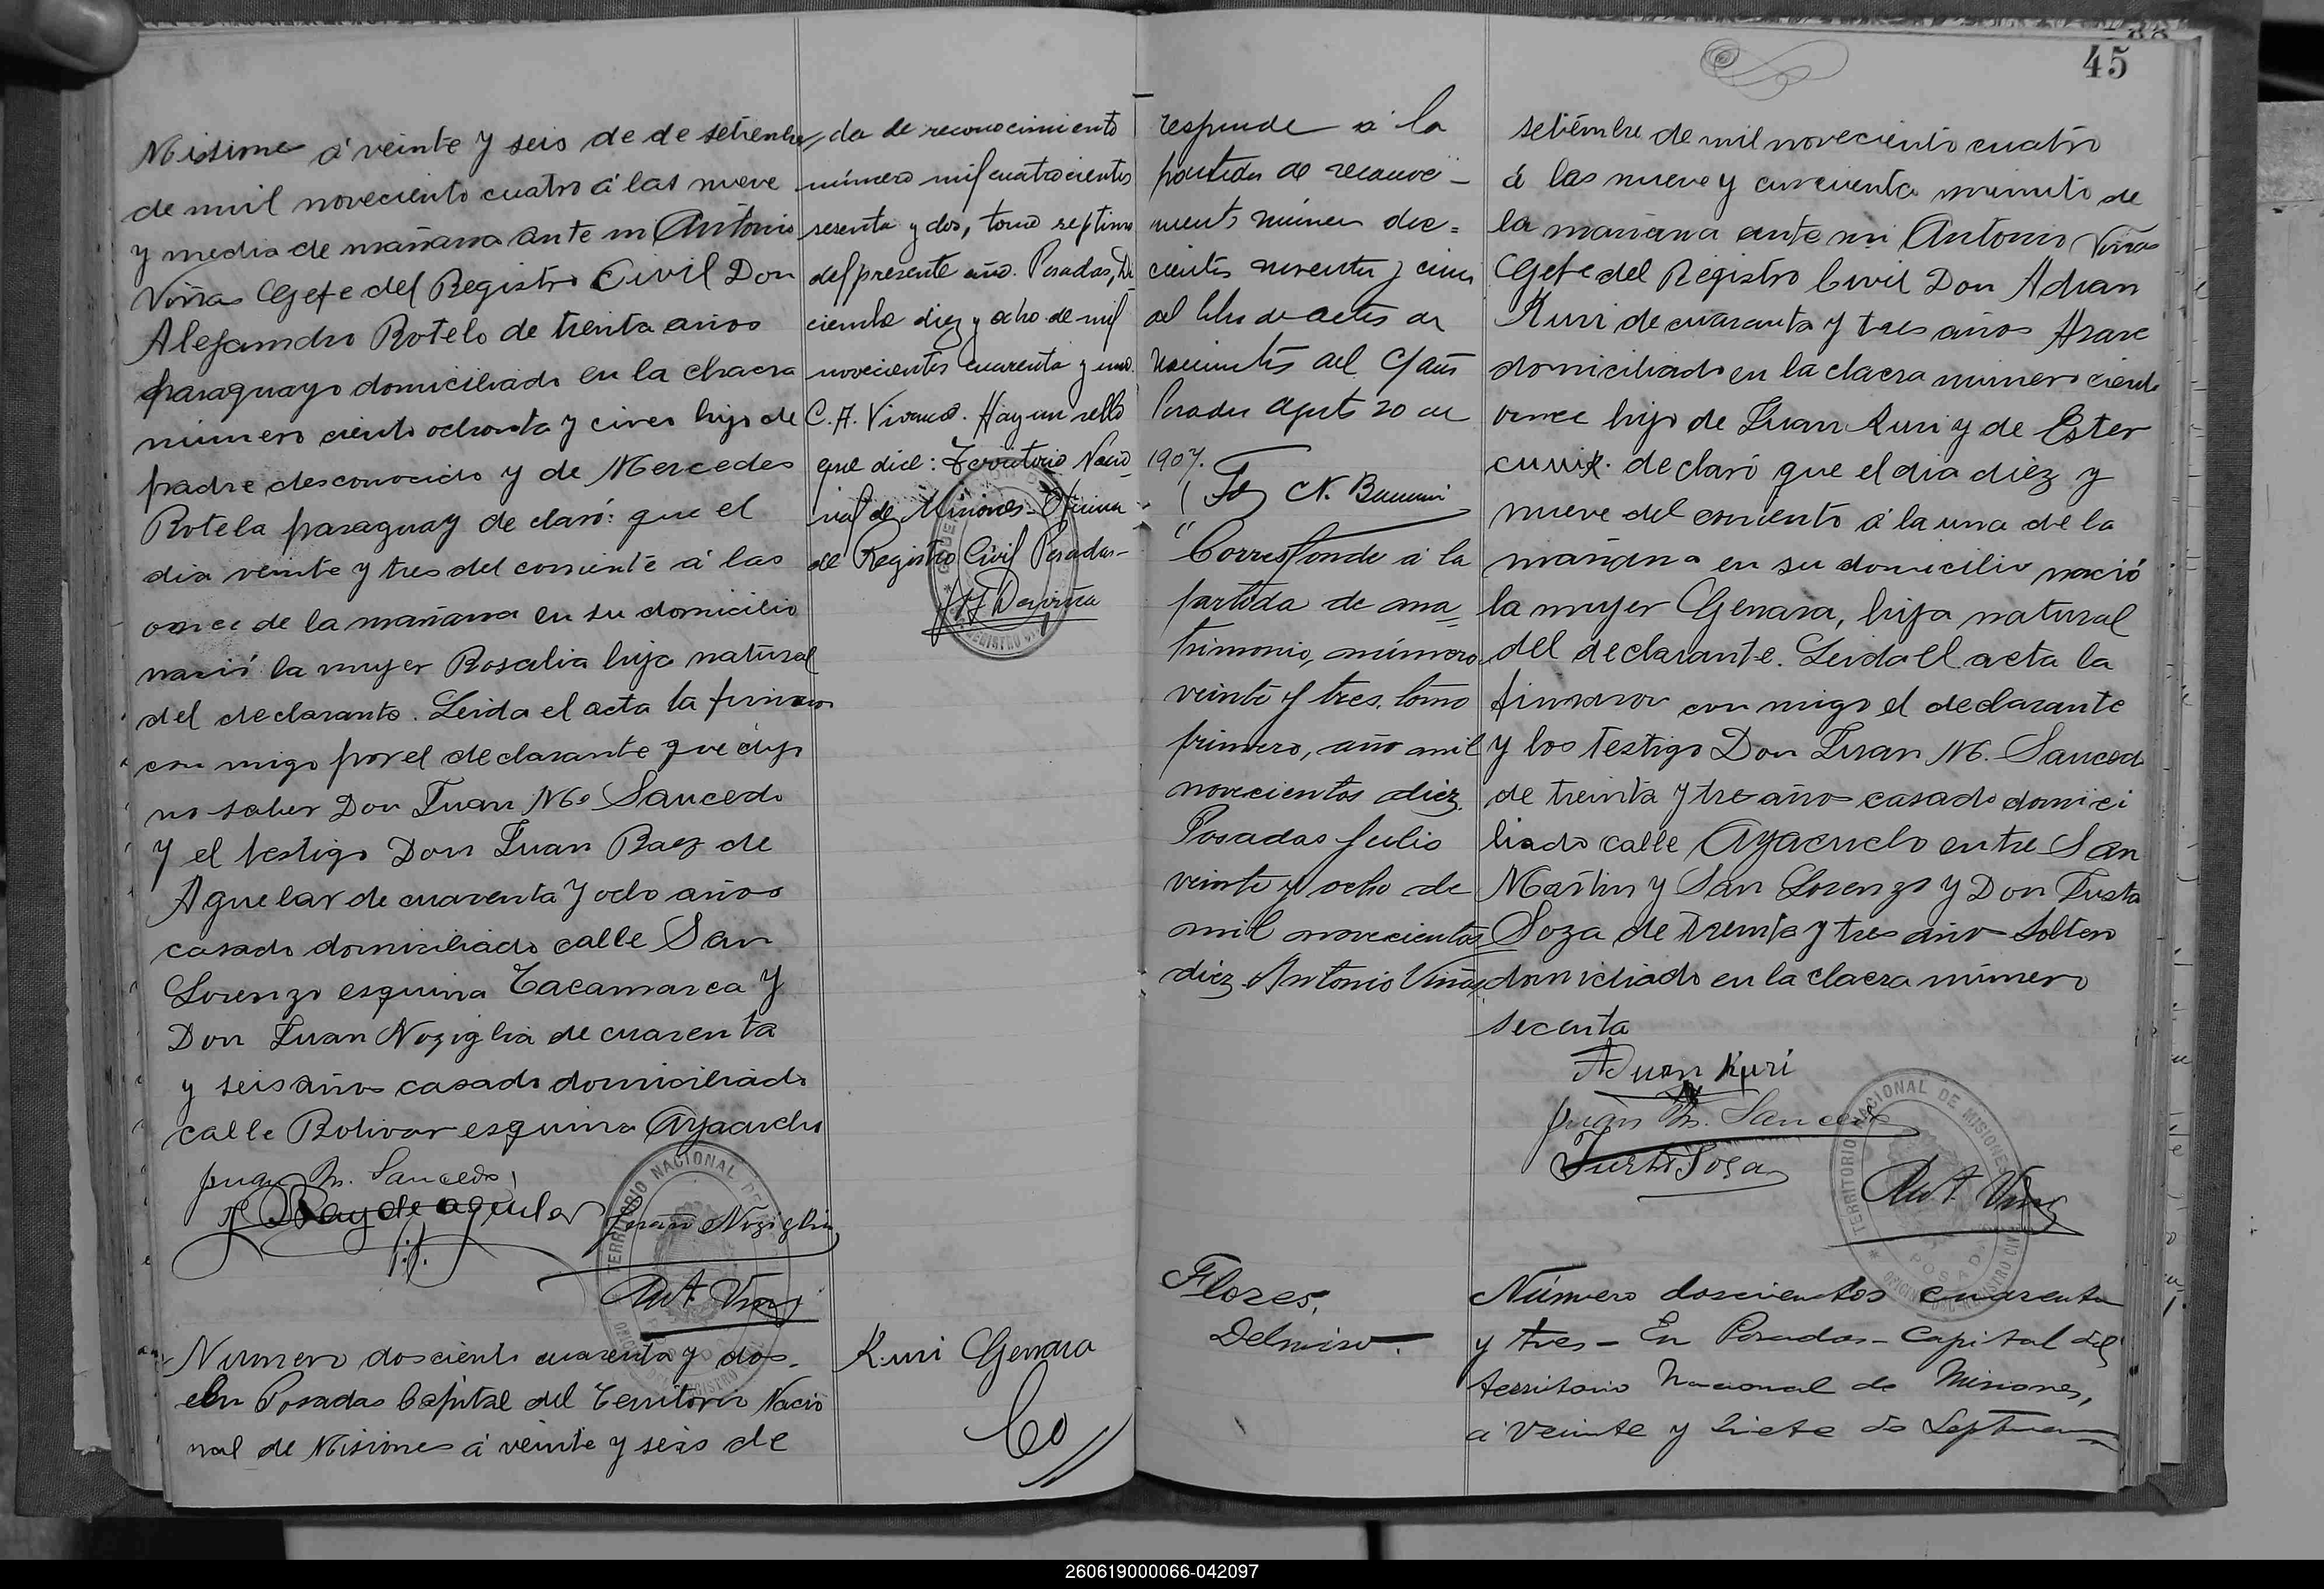 Misione á veinte y seis de de setienbre
de mil noveciento cuatro á las nueve
y media de mañana ante mi Antonio
Viñas Gefe del Registro Civil Don
Alejandro Rotelo de trenta años
paraguayo domiciliado en la chacra
número ciento ochenta y cinco hijo de
padre desconocido y de Mercedes
Rotela paraguay declaró: que el
dia veinte y tres del corriente á las
once de la mañana en su domicilio
nació la muyer Rosalia hija natural
del declarante. Leida el acta la firmaron
con migo por el declarante que dijo
no saber Don Juan M. Saucedo
y el testigo Don Juan Baez de
Aguelar de cuaventa y ocho años
casado domiciliado calle San
Lorenzo esquina Cacamarca y
Don Juan Noziglia de cuarenta
y seis años casado domiciliado
calle Bolivar esquina Ayacucho
Juan M. Saucedo
J. Bay de aguilar
Juan Noziglia
Ant. Viñas
TERRITORIO NACIONAL DE
Numero dosciento cuarenta y dos.
En Posadas Capital del Territorio Nacio
nal de Misiones á veinte y seis de
da de reconocimiento
número mil cuatrocientos
sesenta y dos, tomo septimo
del presente año. Posadas, Di
ciembre diez y ocho de mil
novecientos cuarenta y uno.
C. A. Hay un sello
que dice: Territorio Nacio
nal de Misiones - Oficina
de Registro Civil Posadas-
Kuri Genara
Co
45
responde a la
partida de reconoci-
miento número dos=
cientos noventa y cinco
del libro de actas de
nacimientos del C/ año
Posadas Agosto 20 de
1907.
Corresponde á la
partida de ma=
trimonio, número
veinte y tres, tomo
primero, año mil
novecientos diez.
Posadas Julio
veinte y ocho de
mil novecientos
diez Antonio Viñas
Flores,
Delmiro.
setiémbre de mil noveciento cuatro
á las nueve y cuncuenta minuto de
la mañana ante mi Antonio Viñas
Gefe del Registro Civil Don Adran
Kuri de cuaranta y tres años Arave
domiciliado en la clacra numero ciento
once hijo de Juan Kuri y de Ester
declaró que el dia diez y
nueve del corriente á la una de la
mañana en su domicilio nació
la muyer Genara, hija natural
del declarante. Leida el acta la
firmaron con migo el declarante
y los testigo Don Juan M. Sauced
de treinta y tre año casado domici
liado calle Ayacuclo entre San
Martin y San Lorenzo y Don Justo
Soza de treinta y tres año soltero
domiciliado en la clacra número
secenta
Aduan Kuri
Juan M. Saucedo
Justo Soza
Ant Viñas
TERRITORIO NACIONAL DE MISIONES
POSADAS
OFICINA DEL REGISTRO CIVIL
Número doscientos cuarenta
y tres - En Posadas - Capital del
territorio Nacional de Misiones,
á veinte y siete de Septiem=
260619000066-042097